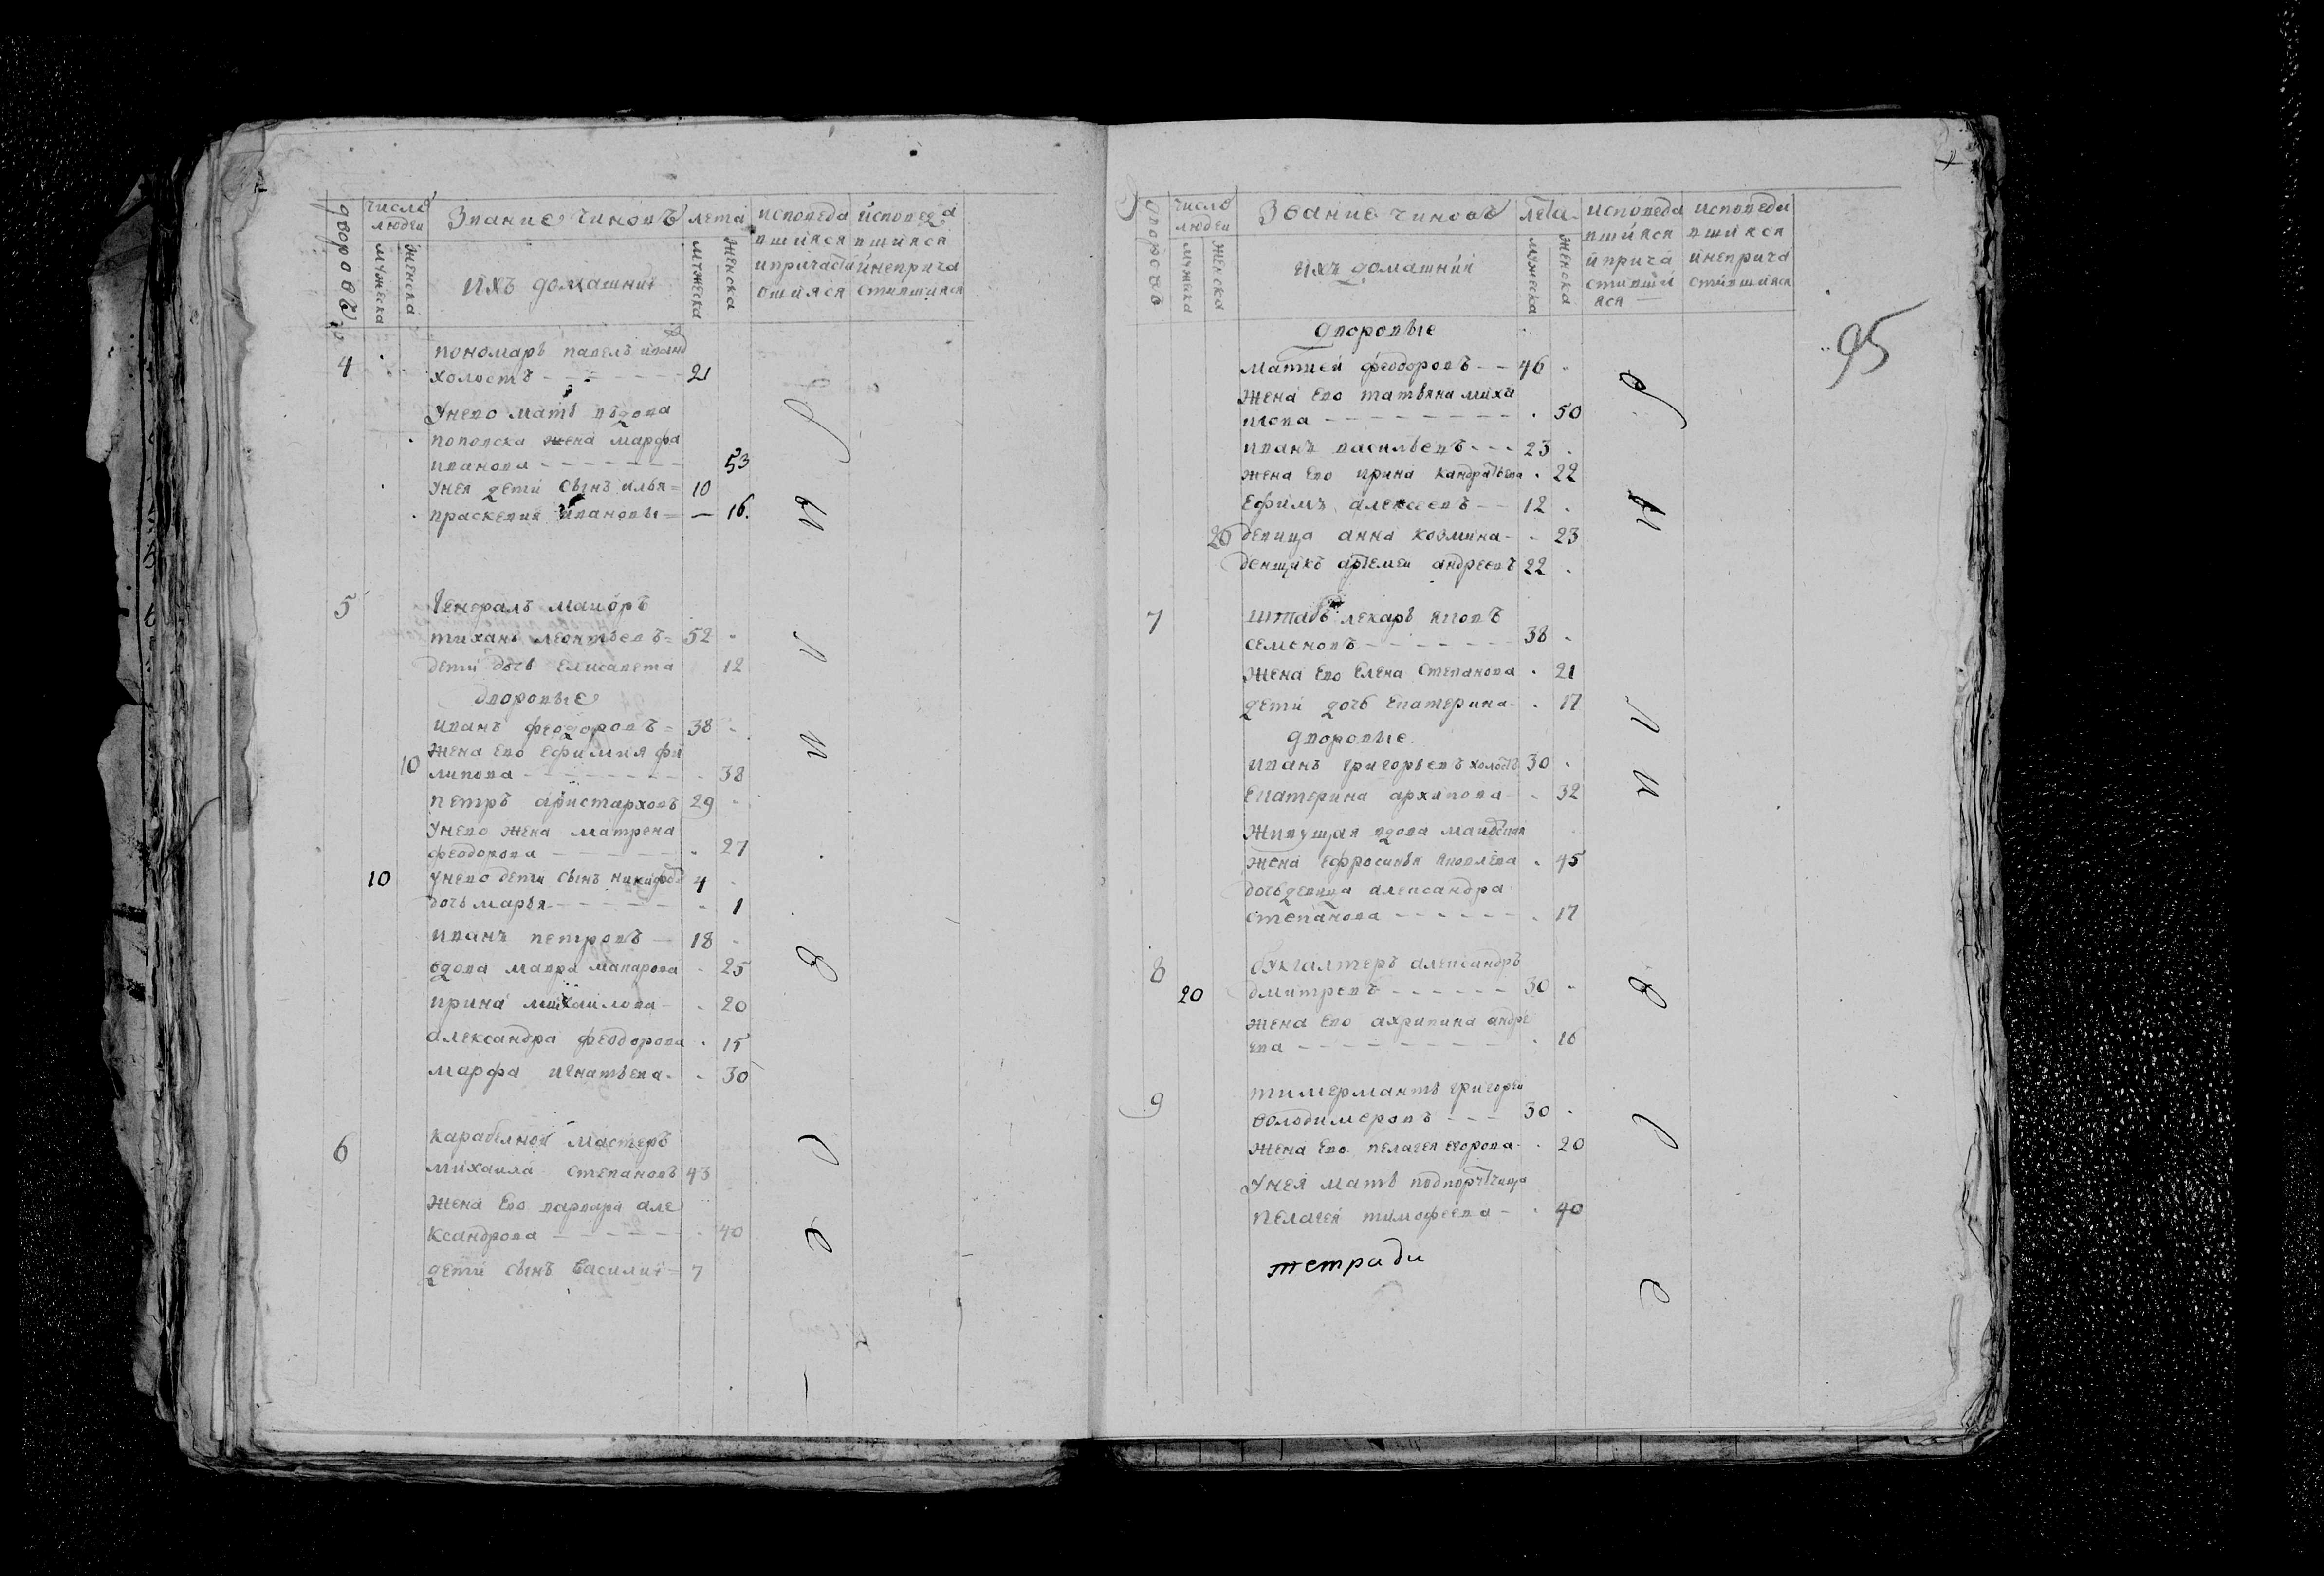 дворовъ
число людеи
мужеска
женска
Звание чиновъ
ихъ домашнии
лета
мужеска
женска
исповеда
вшияся
ипричаста
вшияся
исповеда
вшияся
инеприча
стившияся
4
пономарь павелъ иванъ
холостъ 21
Унево мать вдова
поповска жена марфа
иванова 53
Унея дети сынъ илья 10
праскевия ивановы 16
5
Генералъ маиоръ
тиханъ леонтьевъ 52
дети дочь елисавета 12
дворовые
иванъ феодоровъ 38
жена ево ефимия фи
10 липова 38
петръ аристарховъ 29
Унево жена матрена
феодорова 27
10 Унево дети сынъ 4
дочь марья 1
иванъ петровъ 18
вдова мавра макарова 25
ирина михаилова 20
александра феодорова 15
марфа игнатьева 30
6
карабелнои мастеръ
михаила степановъ 43
жена ево варвара але
ксандрова 40
дети сынъ василии 7
дворовъ
число
людеи
мужеска
женска
Звание чиновъ
ихъ домашнии
лета
мужеска
женска
исповеда
вшияся
иприча
стивши
яся
исповеда
вшияся
инеприча
стившияся
95
дворовые
матвеи феодоровъ 46
жена ево татьяна миха
илова 50
иванъ васильевъ 23
жена ево ирина кандратьева 22
ефимъ алексеевъ 12
20 девица анна козмина 23
денщикъ артемеи андреевъ 22
7
штабъ лекарь яковъ
семеновъ 38
жена ево елена степанова 21
дети дочь екатерина 17
дворовые
иванъ григорьевъ холостъ 30
екатерина архипова 32
живущая вдова
жена ефросинья яковлева 45
дочь девица александра
степанова 17
8
бухгалтеръ александръ
20 дмитревъ 30
жена ево ахрипина андре
ева 16
9
тимермантъ григореи
володимеровъ 30
жена ево пелагея егорова 20
Унея мать подпорутчица
пелагея тимофеева 40
тетради